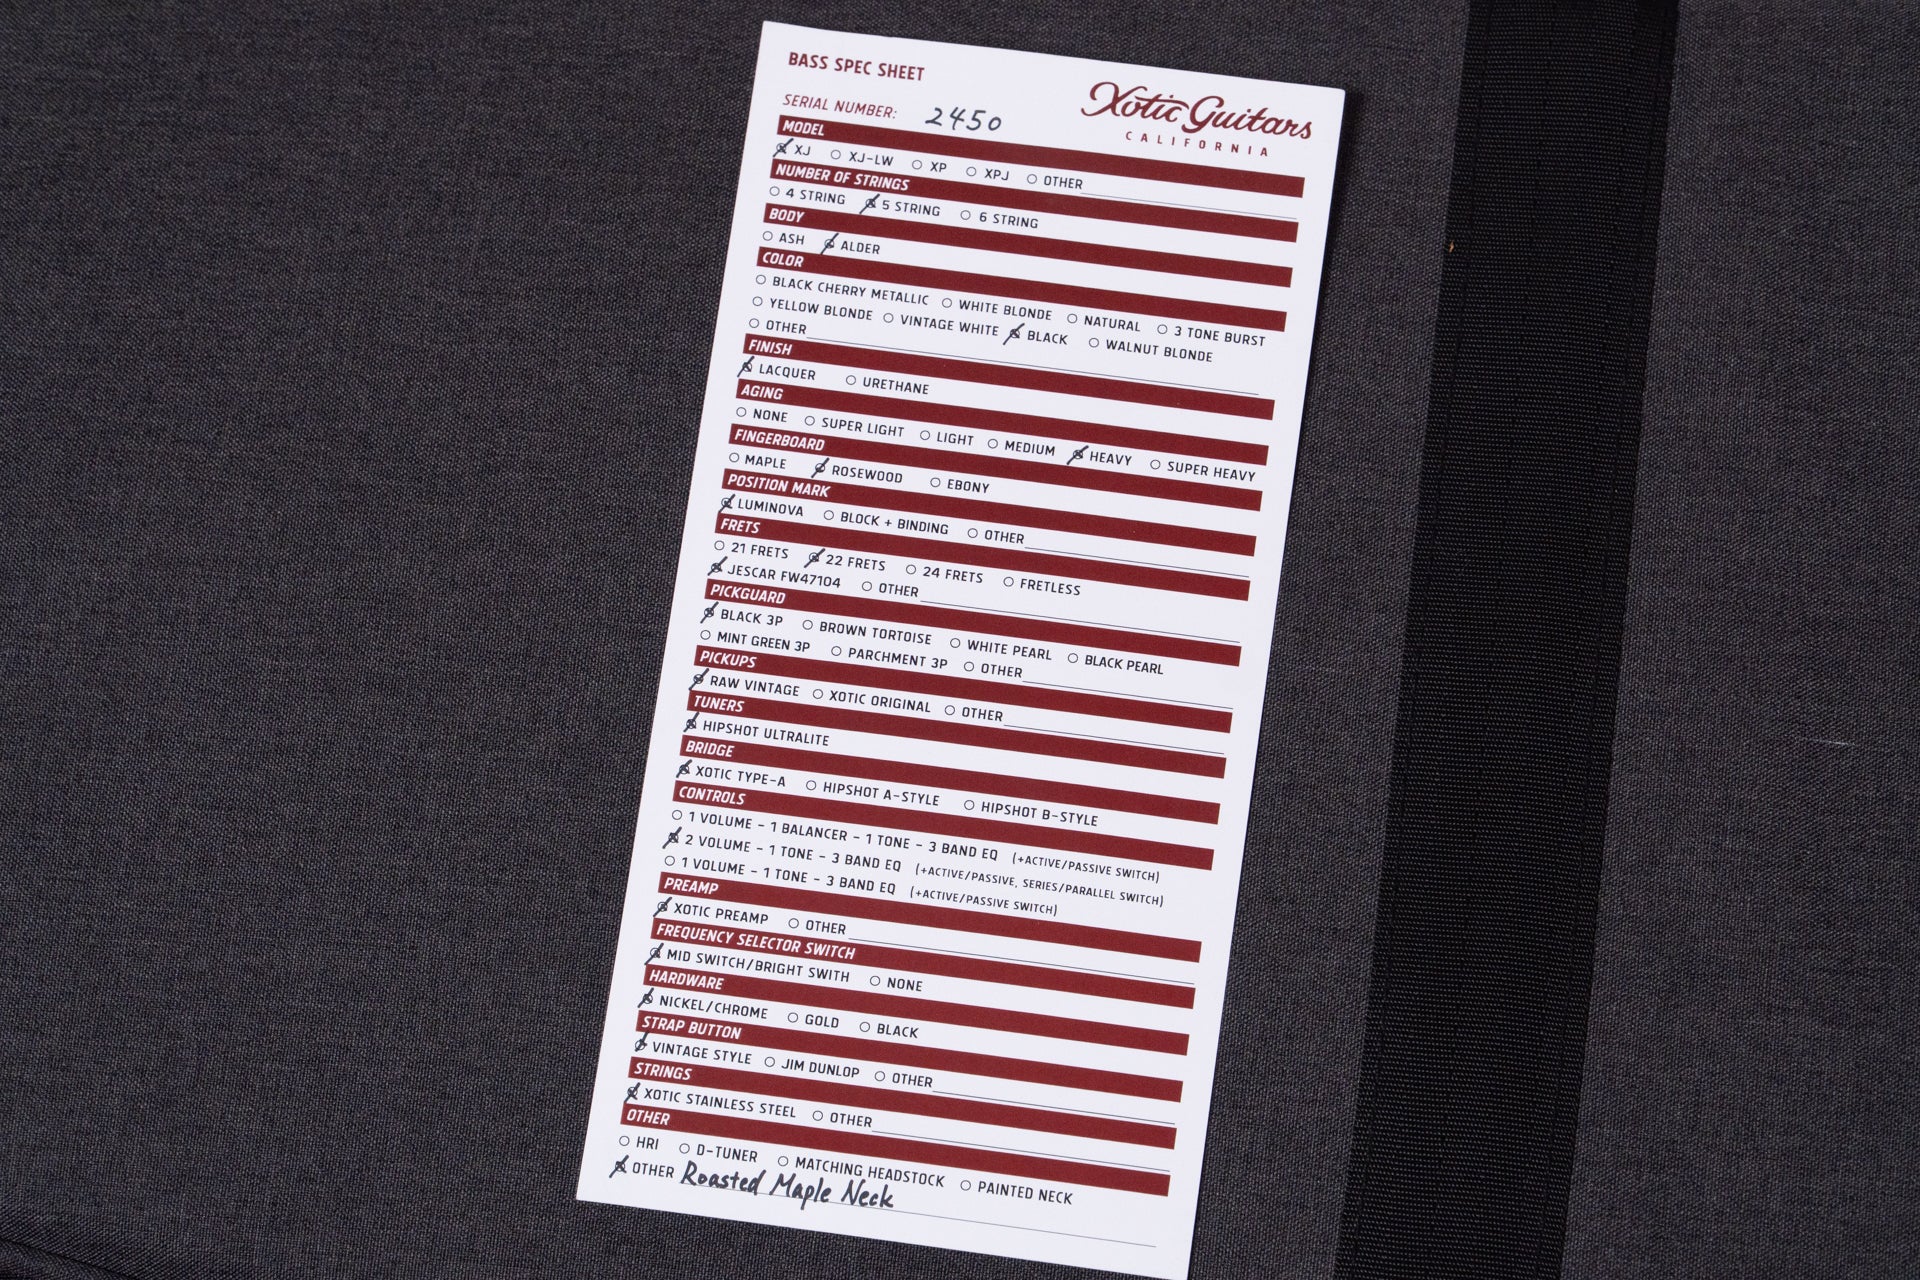 BASS SPEC SHEET
Xotic Guitars
CALIFORNIA
SERIAL NUMBER: 2450
MODEL
XJ XJ-LW XP XPJ OTHER
NUMBER OF STRINGS
4 STRING 5 STRING 6 STRING
BODY
ASH ALDER
COLOR
BLACK CHERRY METALLIC WHITE BLONDE NATURAL 3 TONE BURST
YELLOW BLONDE VINTAGE WHITE BLACK WALNUT BLONDE
OTHER
FINISH
LACQUER URETHANE
AGING
NONE SUPER LIGHT LIGHT MEDIUM HEAVY SUPER HEAVY
FINGERBOARD
MAPLE ROSEWOOD EBONY
POSITION MARK
LUMINOVA BLOCK + BINDING OTHER
FRETS
21 FRETS 22 FRETS 24 FRETS FRETLESS
JESCAR FW47104 OTHER
PICKGUARD
BLACK 3P BROWN TORTOISE WHITE PEARL BLACK PEARL
MINT GREEN 3P PARCHMENT 3P OTHER
PICKUPS
RAW VINTAGE XOTIC ORIGINAL OTHER
TUNERS
HIPSHOT ULTRALITE
BRIDGE
XOTIC TYPE-A HIPSHOT A-STYLE HIPSHOT B-STYLE
CONTROLS
1 VOLUME - 1 BALANCER - 1 TONE - 3 BAND EQ (+ACTIVE/PASSIVE SWITCH)
2 VOLUME - 1 TONE - 3 BAND EQ (+ACTIVE/PASSIVE, SERIES/PARALLEL SWITCH)
1 VOLUME - 1 TONE - 3 BAND EQ (+ACTIVE/PASSIVE SWITCH)
PREAMP
XOTIC PREAMP OTHER
FREQUENCY SELECTOR SWITCH
MID SWITCH/BRIGHT SWITH NONE
HARDWARE
NICKEL/CHROME GOLD BLACK
STRAP BUTTON
VINTAGE STYLE JIM DUNLOP OTHER
STRINGS
XOTIC STAINLESS STEEL OTHER
OTHER
HRI D-TUNER MATCHING HEADSTOCK PAINTED NECK
OTHER Roasted Maple Neck